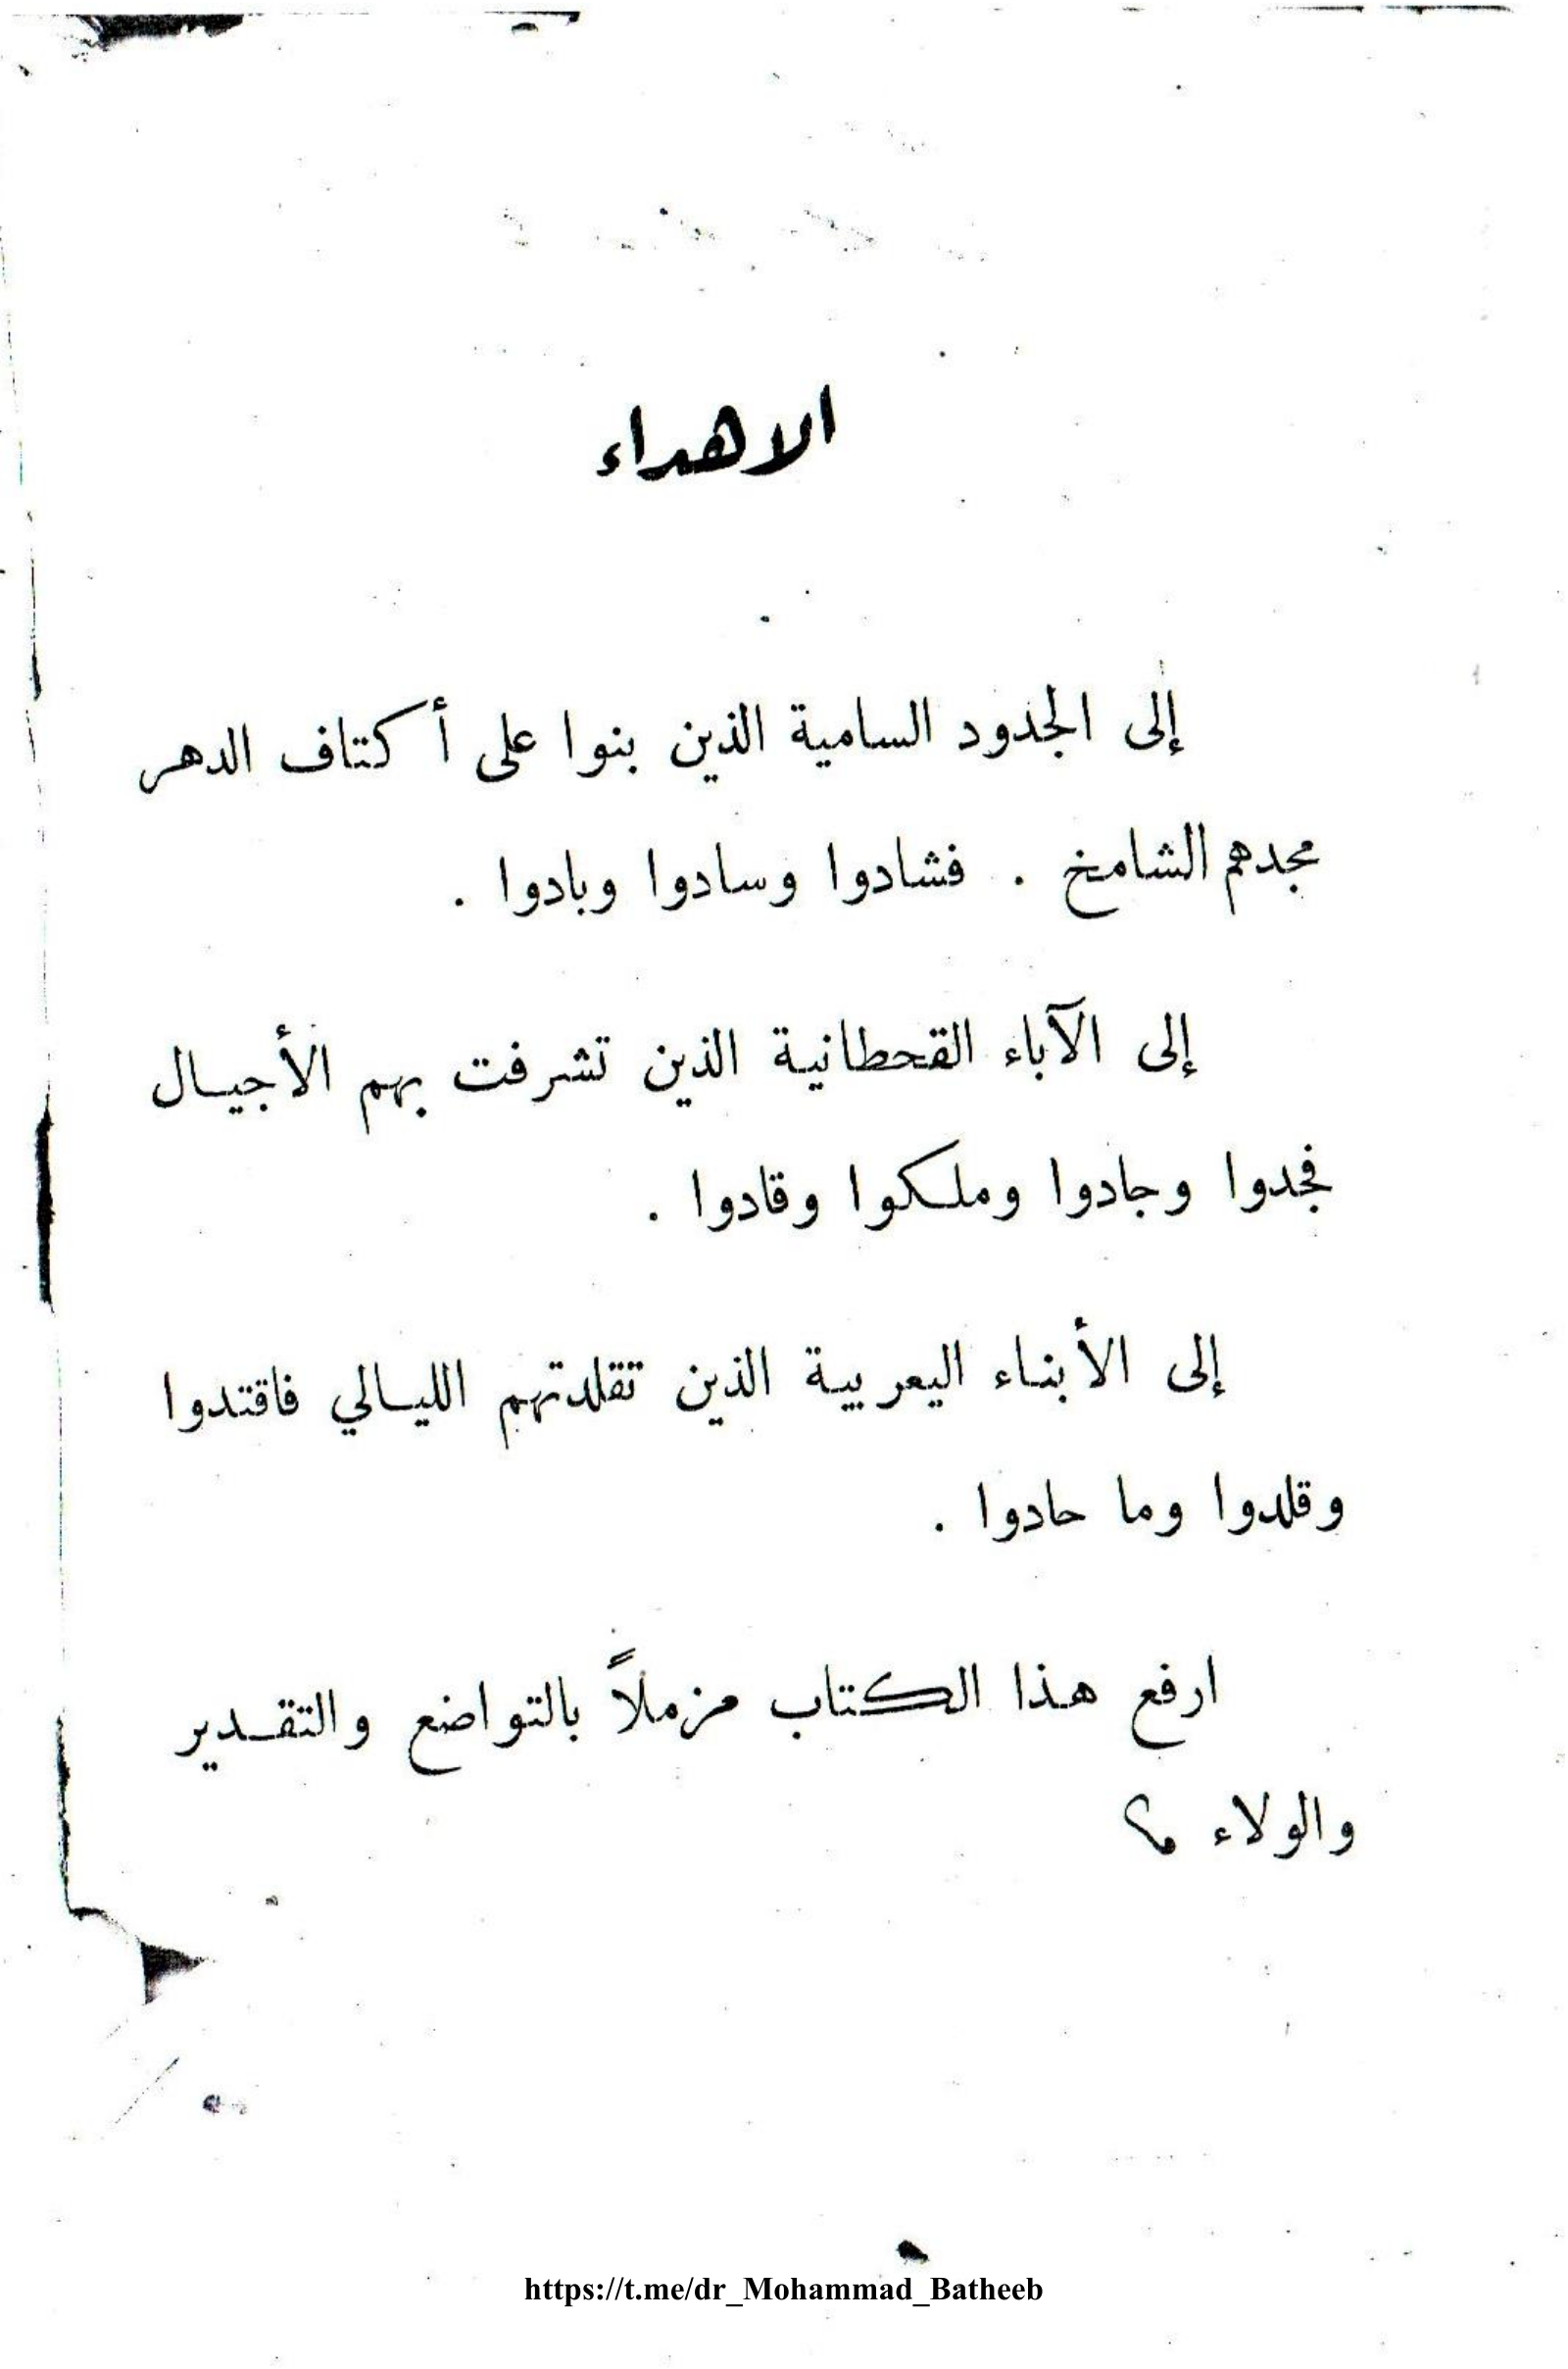 الاهداء
إلى الجدود السامية الذين بنوا على أكتاف الدهر
مجدهم الشامخ . فشادوا وسادوا وبادوا .
إلى الآباء القحطانية الذين تشرفت بهم الأجيال
فجدوا وجادوا وملكوا وقادوا .
إلى الأبناء اليعربية الذين تقلدتهم الليالي فاقتدوا
وقلدوا وما حادوا .
ارفع هذا الكتاب مزملاً بالتواضع والتقدير
والولاء
https://t.me/dr_Mohammad_Batheeb